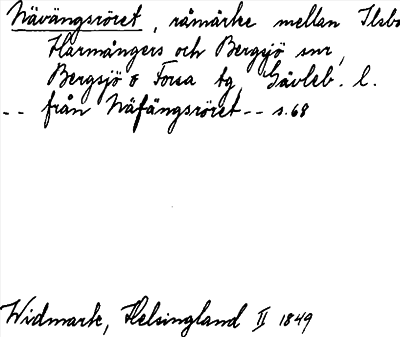 Nävängsröret, råmärke mellan Ilsbo
Harmångers och Bergsjö snr,
Bergsjö o Forsa tg, Gävleb. l.
-- från Näfängsröret -- s. 68
Widmark, Helsingland II 1849